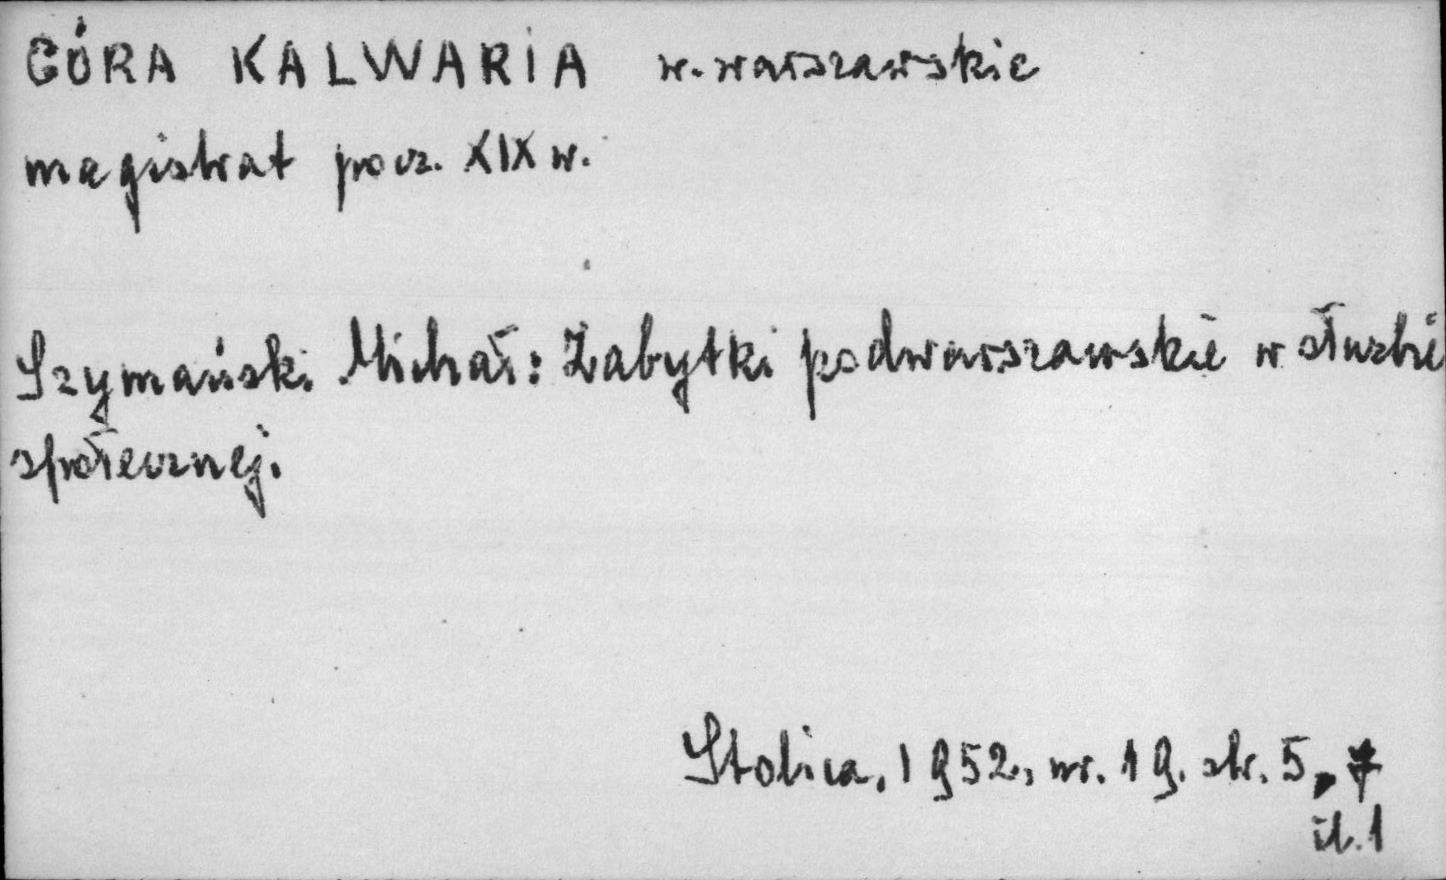 GÓRA KALWARIA w. warszawskie
magistrat pocz. XIX w.
Szymański Michał: Zabytki podwarszawskie w służbie
społecznej.
Stolica, 1952, nr. 19. str. 5, 7
il. 1